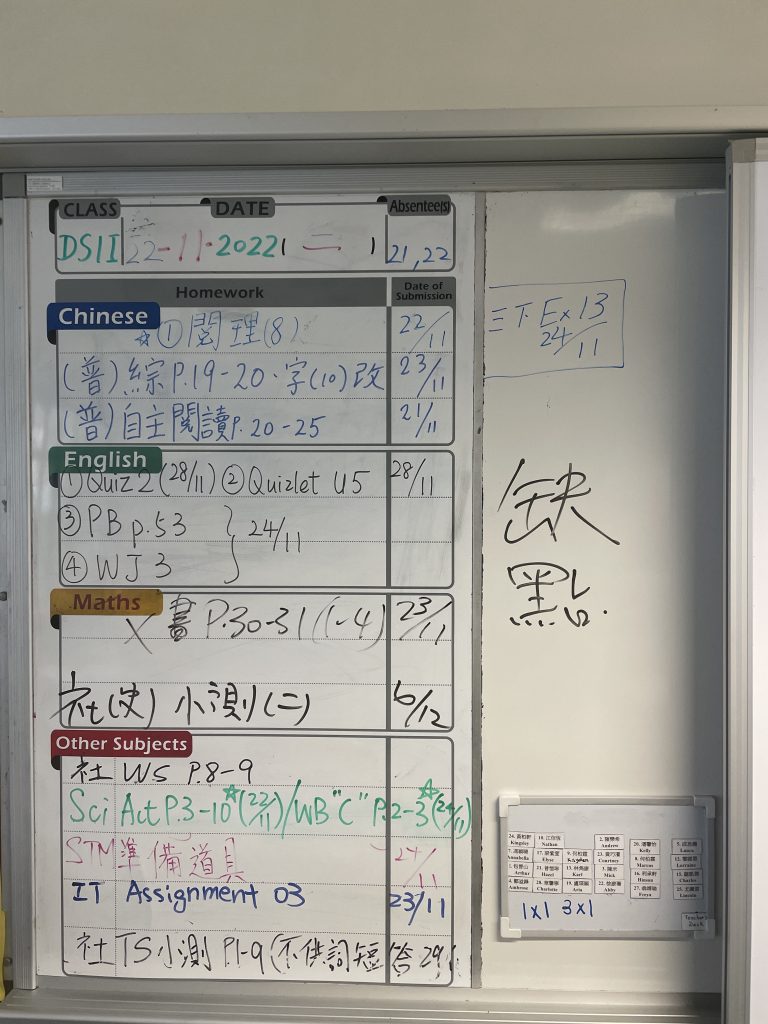 CLASS DATE Absentee(s)
DS11 22-11-2022 (二) 21,22
Homework Date of Submission
Chinese
☆① 閱理(8) 22/11
(普)綜P.19-20·字(10)改 23/11
(普)自主閱讀P.20-25 21/11
English
① Quiz 2 (28/11) ② Quizlet U5 28/11
③ PB p.53 } 24/11
④ WJ 3
Maths
書 P.30-31 (1-4) 23/11
社(史) 小測(二) 6/12
Other Subjects
社 WS P.8-9
Sci Act P.3-10☆(22/11)/WB "C" P.2-3☆(24/11)
STM 準備道具 24/11
IT Assignment 03 23/11
社 TS小測 P1-9 (不供詞短答 29
三下 Ex 13
24/11
缺
點
Kingsley Nathan Andrew Kelly Laura
Annabella Elyse Kayden Courtney Marcus Lorraine
Arthur Hazel Karl Mick Hinson Charles
Ambrose Charlotte Aria Abby Freya Lincoln
1x1 3x1
Teacher's Desk